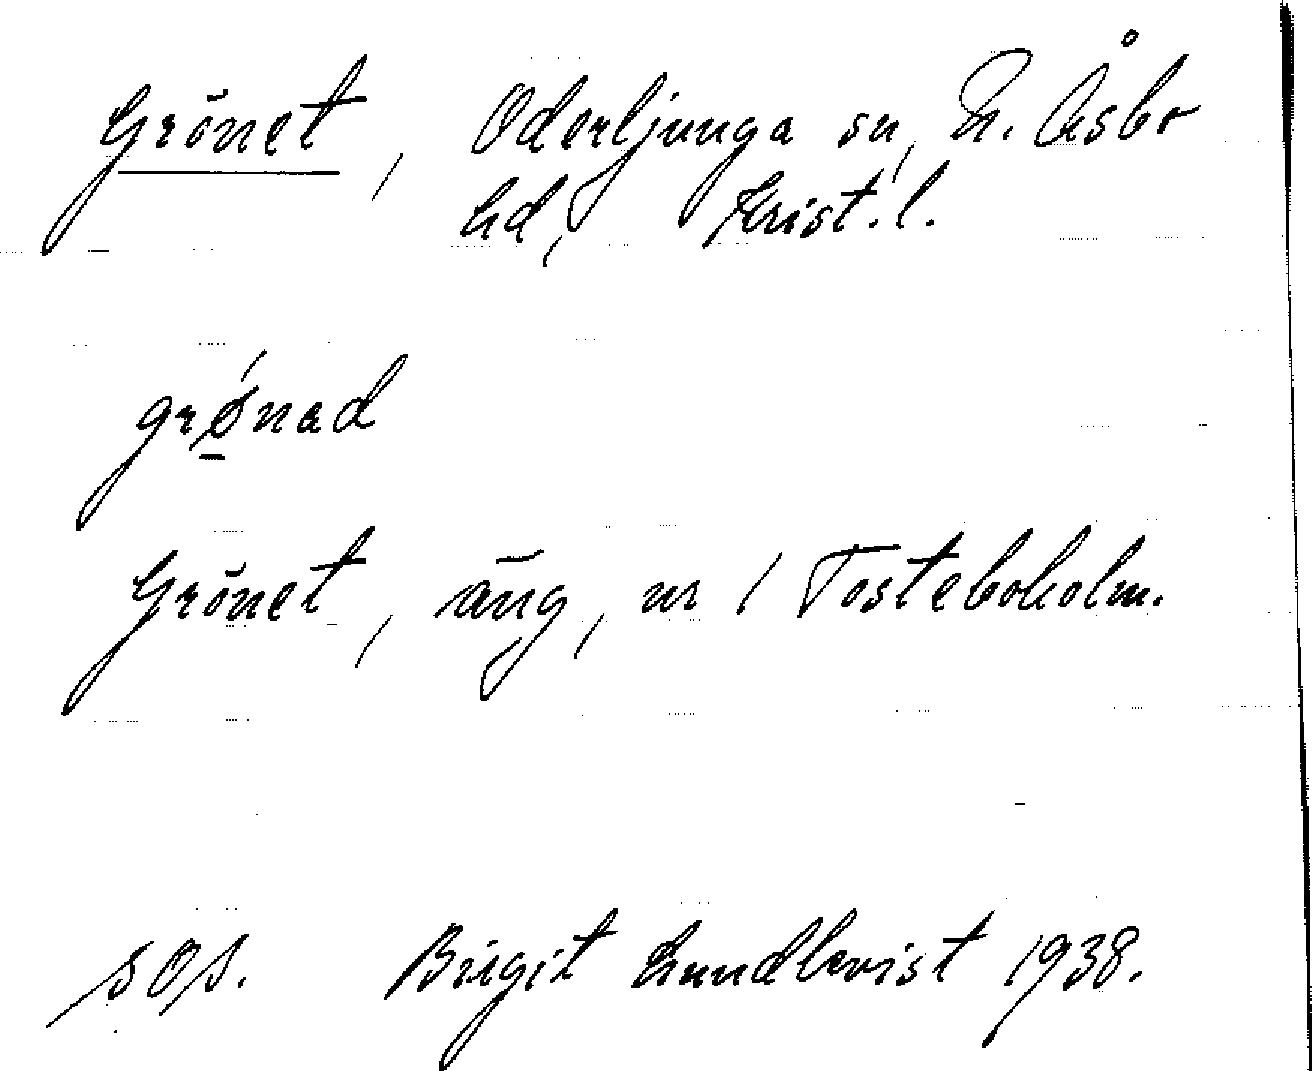 Grönet, Oderljunga sn, N. Åsbo
hd, Krist. l.
grǿnad
Grönet, äng, nr 1 Tosteboholm.
sOs. Birgit Lundkvist 1938.